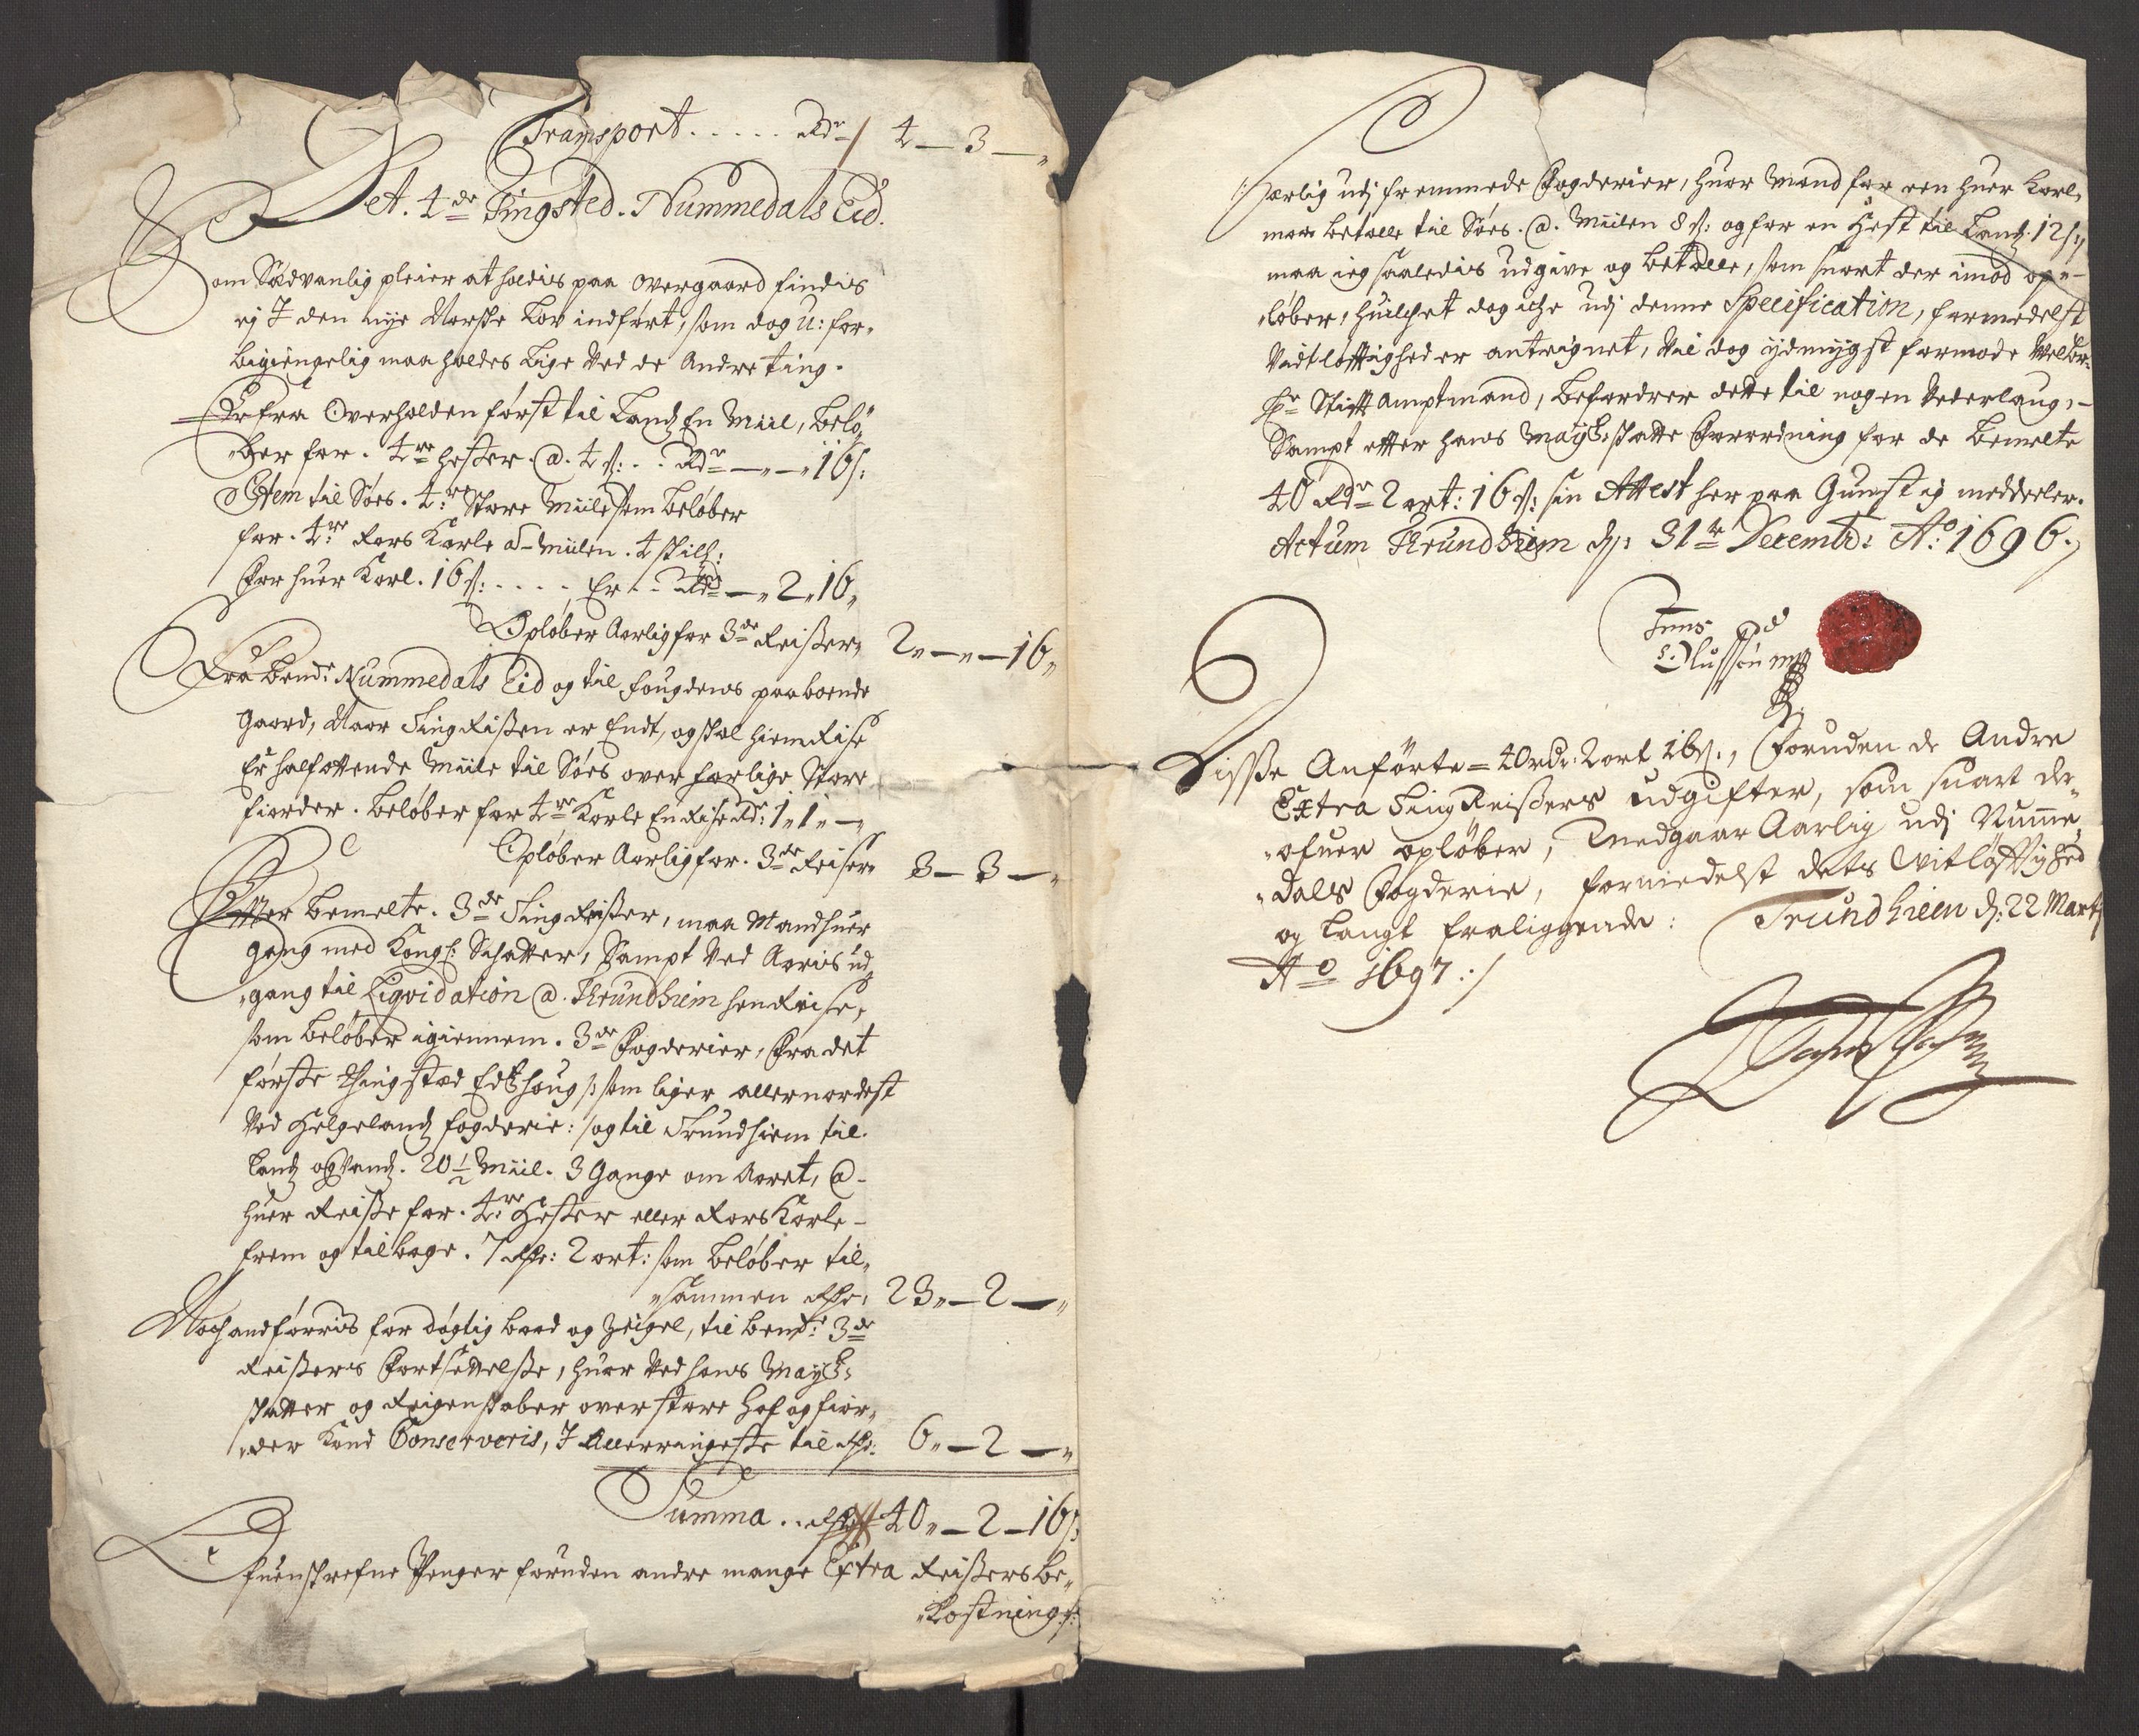 Transport . . . . . Rdr 4 — 3 —
Det. 4de Tingsted. Nummedals Eid.
Som Sædvanlig pleier at holdis paa Overgaard findis
ej I den nÿe Norske Lov indført, som dog u: for-
bigiengelig maa holdes lige Ved de Andre ting.
Er fra Overhalden først til Landz En Miil, belø-
ber for. 4re hester. @. 4 s: . . Rdr — „ — „ 16 s:
Item til Søes. 4re Store Miile som beløber
for. 4re Rors Karle a Miilen. 4 skill:
For huer Karl. 16 s: . . . . Er . . Rdr — „ 2 „ 16 „
Opløber Aarlig for 3de Reisser „ 2 „ — „ — 16 „
Fra bemte Nummedals Eid og til fougdens paaboende
gaard, Naar Ting Reisen er Endt, og skal hiem Reise
Er halfottende Miile til Søes over farlige Store
fiorder. beløber for 4re Karle En Reise Rdr: 1 „ 1 „ —
Opløber Aarlig for. 3de Reiser „ 3 — 3 —
Efter bemelte. 3de Ting Reisser, maa Mand huer
gang med Kongl: Schatter, Sampt Ved Aaris ud-
„gang til Liqvidation @. Thrundhiem hen Reise,
som beløber igiennem. 3de Fogderier, Fra det
første Thingsted Edtzhoug /: som liger allernordest
Ved Helgelandz fogderie: / og til Trundhiem til
Landz og Vandz. 20 1/2 Miil. 3 Gange om Aaret, @
huer Reisse for. 4re hester eller Rors Karle
frem og tilbage. 7 Rdr: 2 ort: som beløber til-
„sammen Rdr, 23 „ — 2 — „
Noch andførris for døgtig baad og Zeigel, til bemte: 3de
Reissers Fortsettelsse, huor Ved hans Maytz:
skatter og Reigenskaber over store Haf og fior-
„der Kand Conserveris, I Allerringeste til Rdr: 6 „ — 2 — „
Summa . . Rdr 40 „ — 2 — 16 s:
foruden andre mange Extra Reissers be-
„kostning s:
aarlig udj fremmede Fogderier, huor Mand for een huer Karl,
maa betalle til Søes. @. Miilen 8 s: og for en Hest til Landz. 12 s:,
maa ieg saaledis udgive og betalle, som snart der imod op-
„løber, huilchet dog iche udj denne Specification, formedelst
Vidtløfftighed er antegnet, Vil dog ÿdmÿgst formode Welbr.
Hr Stifft Amptmand, befordrer dette til nogen Vederlaug, —
Sampt effter hans Maytz: skatte Forordning for de bemelte
40 Rdr 2 ort: 16 s: sin Attest her paa Gunstig meddeeler.
Actum Thrundhiem d: 31te Decembr: Ao: 1696.
Jens
Olussøn mpp
Disse Anførte = 40 rdr: 2 ort 16 s:, Foruden de Andre
Extra Ting Reissers udgifter, som snart der-
„ofuer opløber, Medgaar Aarlig udj Numme-
„dals Fogderie, formedelst dets Witløfftighed
og langt fraliggende: Trundhiem d: 22 Martj
Ao 1697 :/